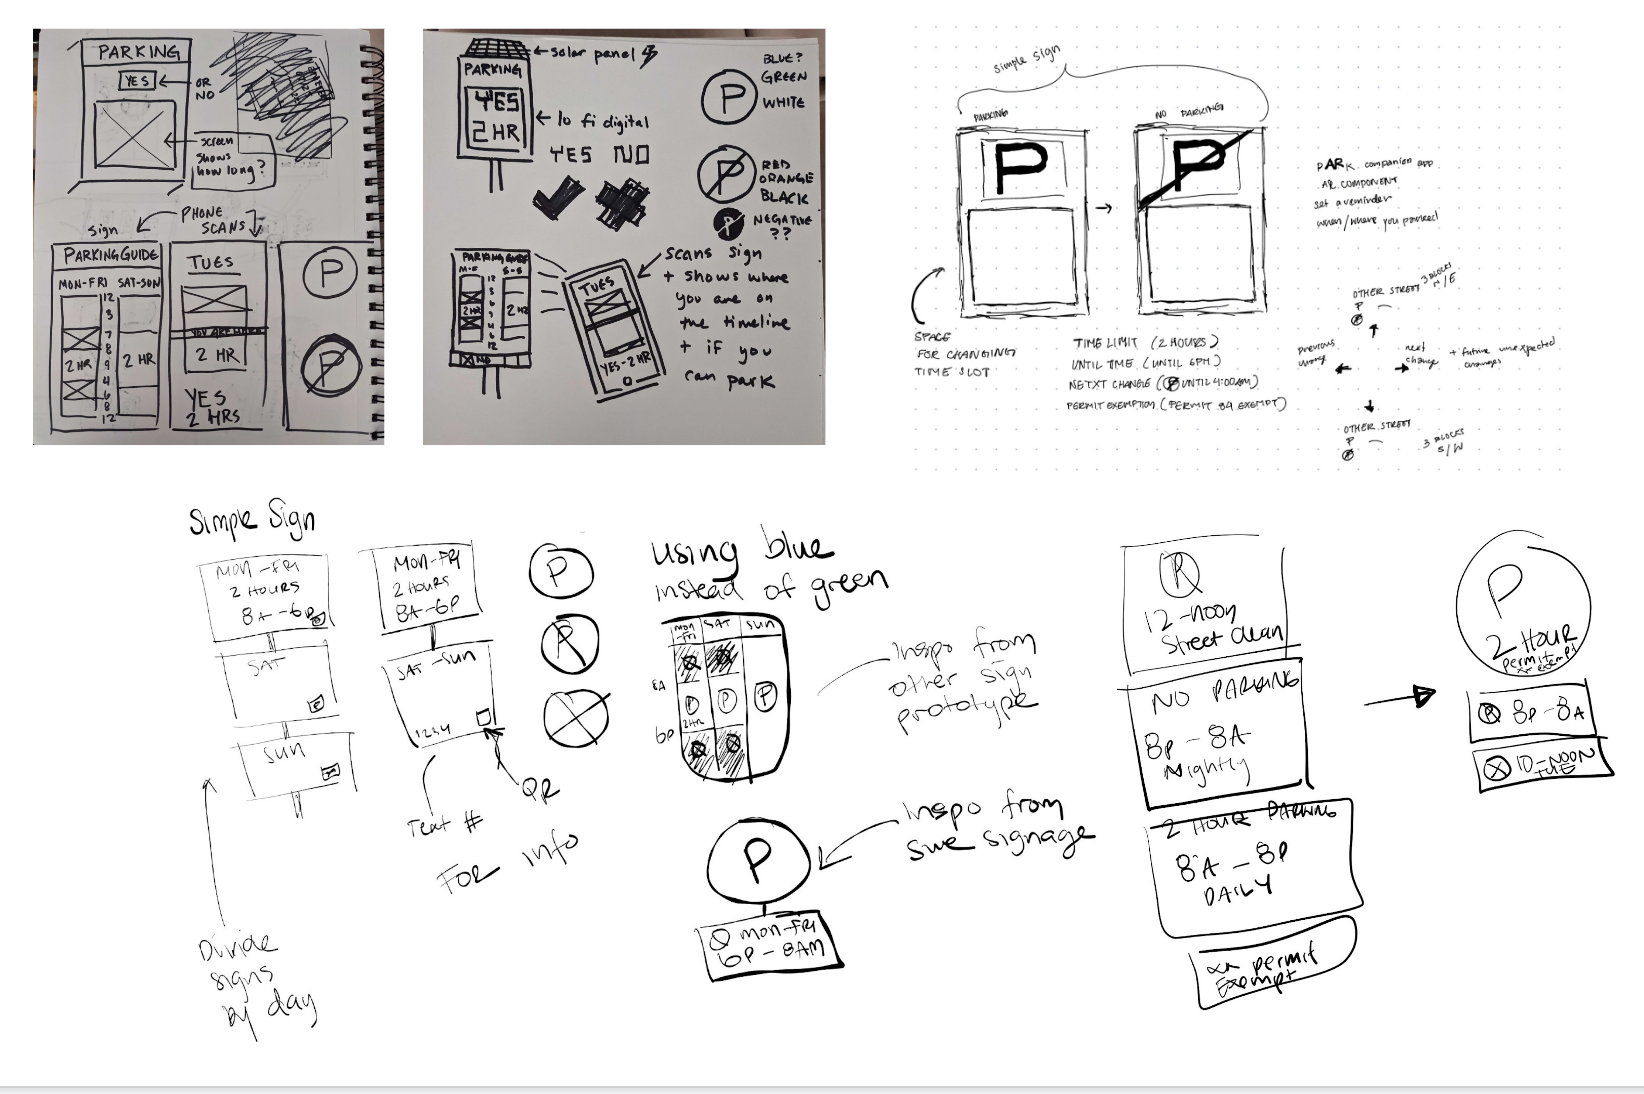 PARKING
YES
OR
NO
SCREEN
SHOWS
HOW LONG?
Sign
PHONE
SCANS
PARKING GUIDE
MON-FRI SAT-SUN
12
3
7
8
9
4
6
8
12
2 HR
2 HR
TUES
YOU ARE HERE
2 HR
YES
2 HRS
P
P
solar panel
PARKING
YES
2 HR
lo fi digital
YES NO
BLUE?
GREEN
WHITE
P
P
RED
ORANGE
BLACK
P
NEGATIVE
??
PARKING GUIDE
M-F S-S
2 HR
2 HR
NO
TUES
YES-2 HR
SCANS SIGN
+ SHOWS WHERE
YOU ARE ON
THE TIMELINE
+ IF YOU
CAN PARK
simple sign
PARKING
NO PARKING
P
P
SPACE
FOR CHANGING
TIME SLOT
TIME LIMIT (2 HOURS)
UNTIL TIME (UNTIL 6PM)
NETXT CHANGE (P UNTIL 4:00AM)
PERMIT EXEMPTION (PERMIT 84 EXEMPT)
PARK companion app
AR COMPONENT
set a reminder
when/where you parked
OTHER STREET
3 BLOCKS
N/E
P
P
previous
change
next
change
+ future unexpected
changes
OTHER STREET
P
P
3 BLOCKS
S/W
Simple Sign
MON-FRI
2 HOURS
8A-6P
SAT
SUN
MON-FRI
2 HOURS
8A-6P
SAT-SUN
1234
P
R
X
Divide
signs
by day
Text #
QR
FOR info
using blue
instead of green
MON-FRI
SAT
SUN
8A
6P
P
2HR
P
P
Inspo from
other sign
prototype
Inspo from
swe signage
P
MON-FRI
6P-8AM
R
12-noon
Street Clean
NO PARKING
8P-8A
Nightly
2 HOUR PARKING
8A-8P
DAILY
xx permit
Exempt
P
2 HOUR
permit
xx exempt
R 8P-8A
X 10-NOON
TUE